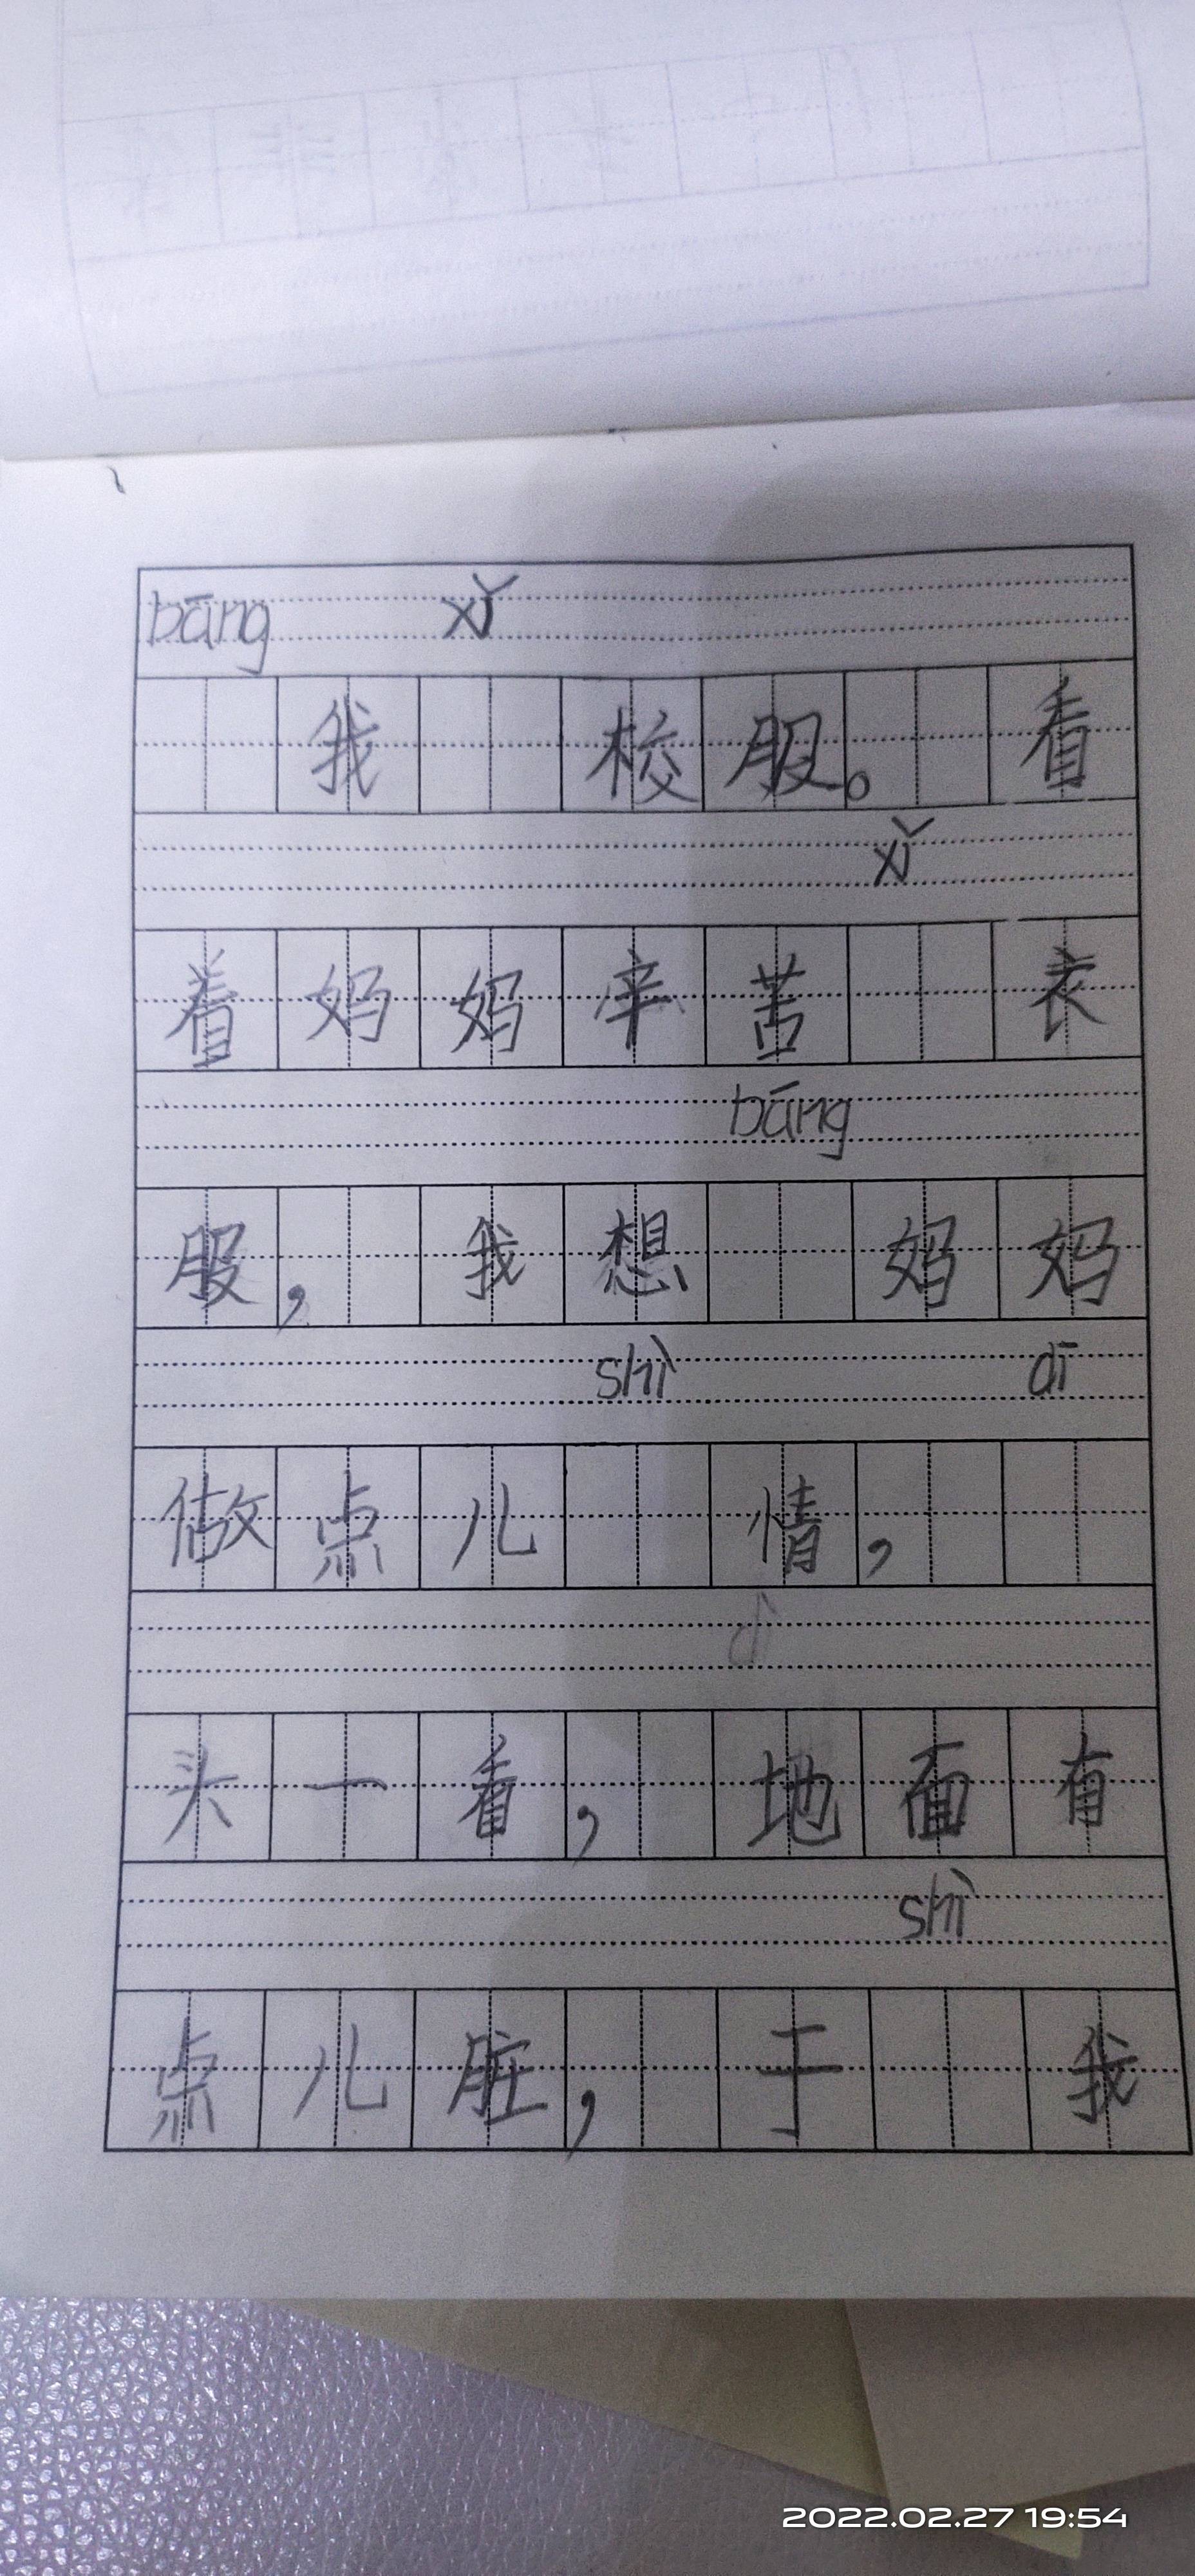 bāng xǐ
我 校服。看
xǐ
着妈妈辛苦 衣
bāng
服，我想 妈妈
shì dī
做点儿 情，
头一看，地面有
shì
点儿脏，于 我
2022.02.27 19:54